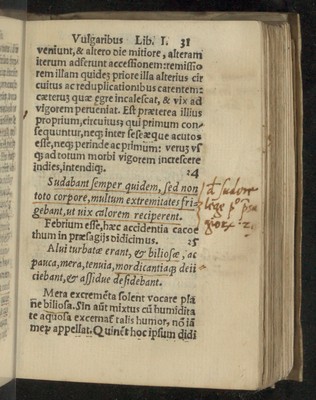 Vulgaribus Lib. I. 31
veniunt, & altero die mitiore, alteram
iterum adferunt accessionem: remissio
rem illam quidẽ priore illa alterius cir
cuitus ac reduplicationibus carentem:
cæterũ quæ ægre incalescat, & vix ad
vigorem perueniat. Est præterea illius
proprium, circuitus qui primum con-
sequuntur, neq; inter sese æque acutos
esse, neq; perinde ac primum: verũ vs
q; ad totum morbi vigorem increscere
indies, intendiq;.
24
Sudabant semper quidem, sed non
toto corpore, multum extremitates fri-
gebant, ut uix calorem reciperent.
Febrium esse, hæc accidentia cacoe
thum in præsagijs didicimus.
25
Alui turbatæ erant, & biliosæ, ac
pauca, mera, tenuia, mordicantiaq; deii
ciebant, & assidue desidebant.
Mera excremẽta solent vocare plã
ne biliosa. Sin aũt mixtus cũ humidita
te aquosa excernat̃ talis humor, nõ iã
merũ appellat. Quinẽt hoc ipsum didi